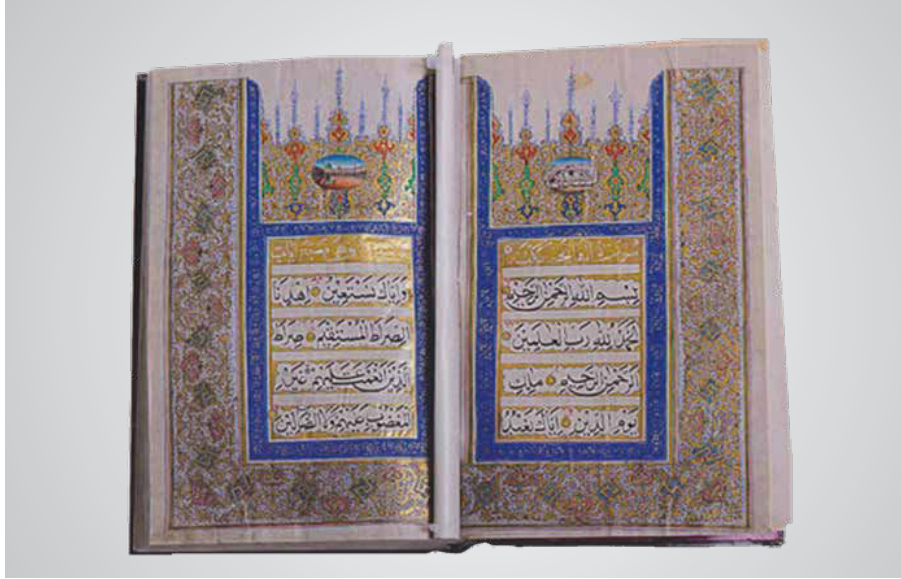 بِسْمِ اللهِ الرَّحْمٰنِ الرَّحِيمِ
اَلْحَمْدُ لِلّٰهِ رَبِّ الْعَالَمِينَ
اَلرَّحْمٰنِ الرَّحِيمِ مَلِكِ
يَوْمِ الدِّينِ اِيَّاكَ نَعْبُدُ
وَاِيَّاكَ نَسْتَعِينُ اِهْدِنَا
الصِّرَاطَ الْمُسْتَقِيمَ صِرَاطَ
الَّذِينَ اَنْعَمْتَ عَلَيْهِمْ غَيْرِ
الْمَغْضُوبِ عَلَيْهِمْ وَلَا الضَّالِّينَ